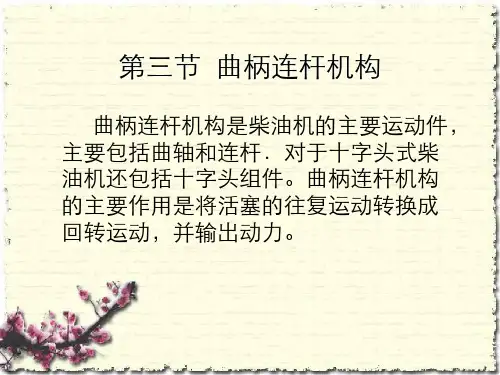 第三节 曲柄连杆机构
曲柄连杆机构是柴油机的主要运动件，
主要包括曲轴和连杆．对于十字头式柴
油机还包括十字头组件。曲柄连杆机构
的主要作用是将活塞的往复运动转换成
回转运动，并输出动力。